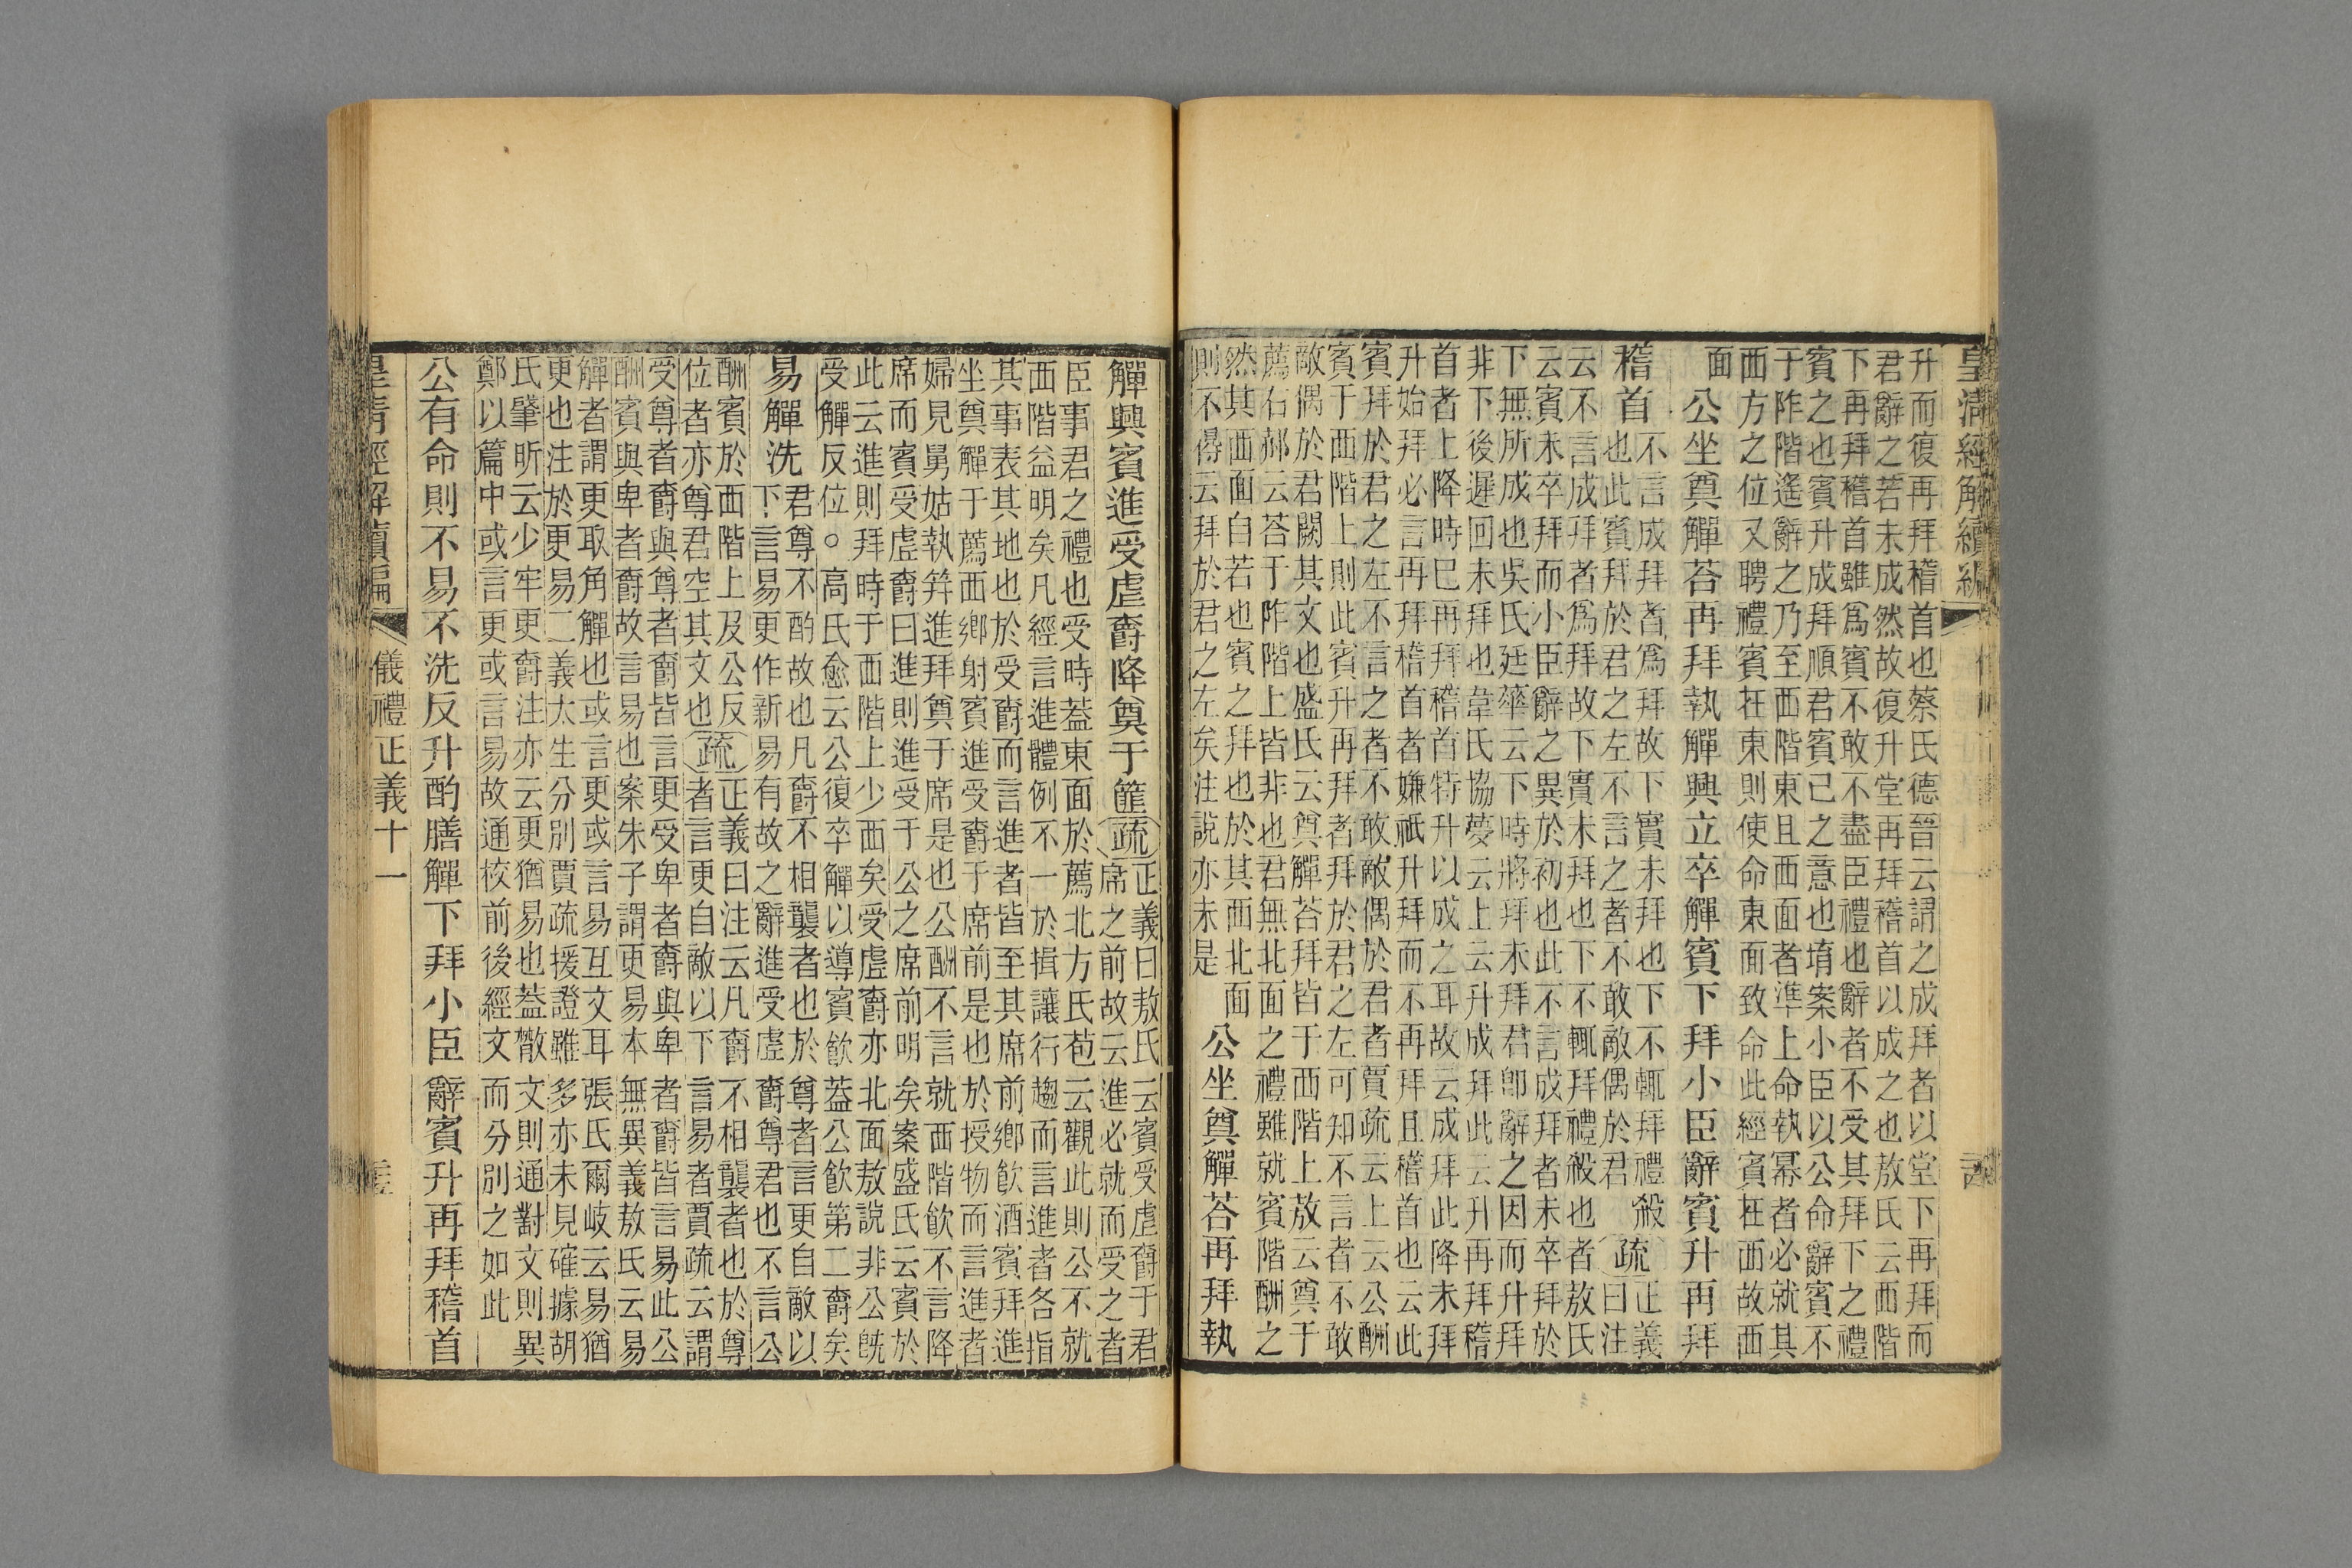 皇清經解續編
升而復再拜稽首也蔡氏德晉云謂之成拜者以堂下再拜而
君辭之若未成然故復升堂再拜稽首以成之也敖氏云西階
下再拜稽首雖爲賓不敢不盡臣禮也辭者不受其拜下之禮
賓之也賓升成拜順君賓已之意也堉案小臣以公命辭賓不
于阼階遙辭之乃至西階東且西面者準上命執冪者必就其
西方之位又聘禮賓在東則使命東面致命此經賓在西故西
面 公坐奠觶荅再拜執觶興立卒觶賓下拜小臣辭賓升再拜
稽首
不言成拜者爲拜故下實未拜也下不輒拜禮殺
也此賓拜於君之左不言之者不敢敵偶於君
疏
正義
曰注
云不言成拜者爲拜故下實未拜也下不輒拜禮殺也者敖氏
云賓未卒拜而小臣辭之異於初也此不言成拜者未卒拜於
下無所成也吳氏廷華云下時將拜未拜君卽辭之因而升拜
非下後遲回未拜也韋氏協夢云上云升成拜此云升再拜稽
首者上降時已再拜稽首特升以成之耳故云成拜此降未拜
升始拜必言再拜稽首者嫌祇升拜而不再拜且稽首也云此
賓拜於君之左不言之者不敢敵偶於君者賈疏云上云公酬
賓于西階上則此賓升再拜者拜於君之左可知不言者不敢
敵偶於君闕其文也盛氏云奠觶荅拜皆于西階上敖云奠于
薦右郝云荅于阼階上皆非也君無北面之禮雖就賓階酬之
然其西面自若也賓之拜也於其西北面
則不得云拜於君之左矣注說亦未是
公坐奠觶荅再拜執
觶興賓進受虛爵降奠于篚 疏
正義曰敖氏云賓受虛爵于君
席之前故云進必就而受之者
臣事君之禮也受時蓋東面於薦北方氏苞云觀此則公不就
西階益明矣凡經言進體例不一於揖讓行趨而言進者各指
其事表其地也於受爵而言進者皆至其席前鄉飲酒賓拜進
坐奠觶于薦西鄉射賓進受爵于席前是也於授物而言進者
婦見舅姑執笲進拜奠于席是也公酬不言就西階飲不言降
席而賓受虛爵曰進則進受于公之席前明矣案盛氏云賓於
此云進則拜時于西階上少西矣受虛爵亦北面敖說非公旣
受觶反位○高氏愈云公復卒觶以導賓飲蓋公飲第二爵矣
易觶洗
君尊不酌故也凡爵不相襲者也於尊者言更自敵以
下言易更作新易有故之辭進受虛爵尊君也不言公
酬賓於西階上及公反
位者亦尊君空其文也
疏
正義曰注云凡爵不相襲者也於尊
者言更自敵以下言易者賈疏云謂
受尊者爵與尊者爵皆言更受卑者爵與卑者爵皆言易此公
酬賓與卑者爵故言易也案朱子謂更易本無異義敖氏云易
觶者謂更取角觶也或言更或言易互文耳張氏爾岐云易猶
更也注於更易二義太生分別賈疏援證雖多亦未見確據胡
氏肇昕云少牢更爵注亦云更猶易也蓋散文則通對文則異
鄭以篇中或言更或言易故通校前後經文而分別之如此
公有命則不易不洗反升酌膳觶下拜小臣辭賓升再拜稽首
皇清經解續編 儀禮正義十一